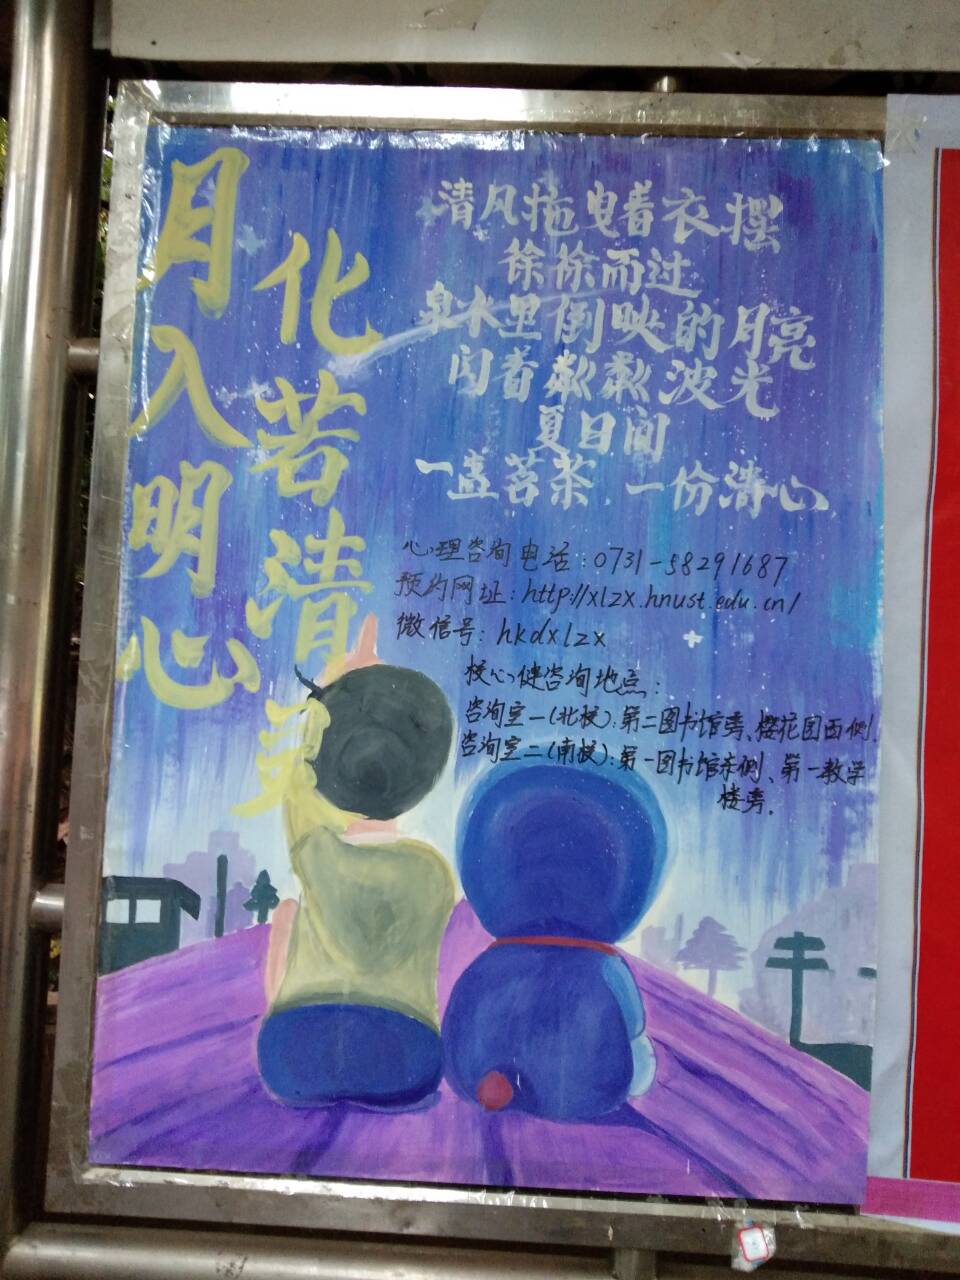 月入明心
化若清灵
清风拖曳着衣摆
徐徐而过
泉水里倒映的月亮
闪着粼粼波光
夏日间
一盏茗茶，一份清心
心理咨询电话：0731-58291687
预约网址：http://xlzx.hnust.edu.cn/
微信号：hkdxlzx
校心健咨询地点：
咨询室一（北校）：第二图书馆旁、樱花园西侧.
咨询室二（南校）：第一图书馆东侧、第一教学
楼旁.